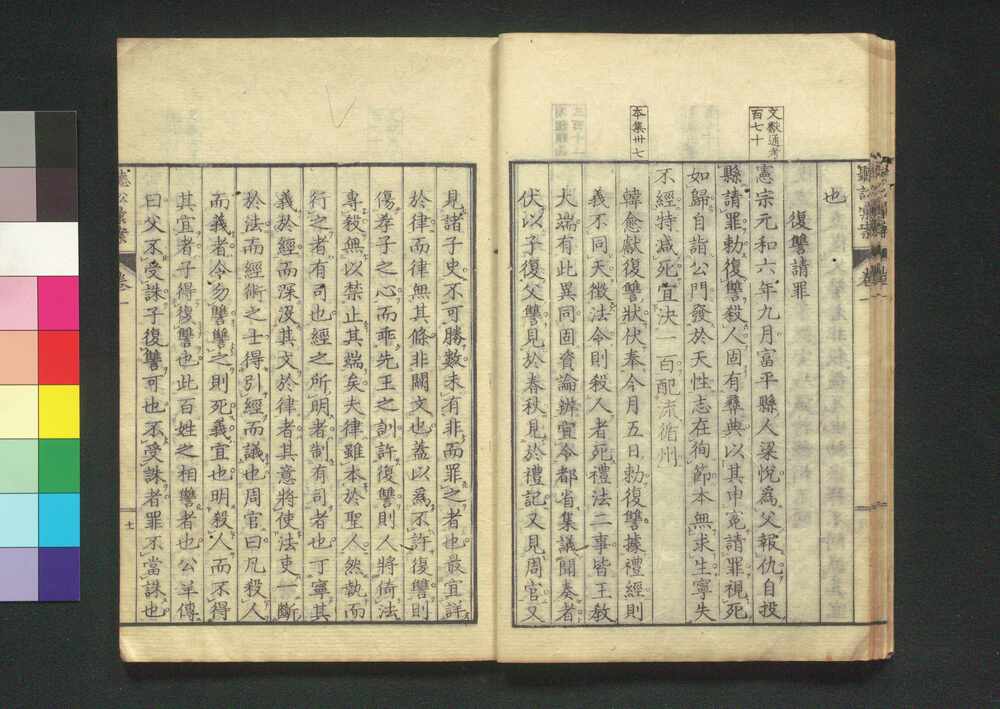 也
復讐請罪
文獻通考
百七十
憲宗元和六年九月富平縣人梁悅爲父報仇自投
縣請罪勅復讐殺人固有彝典以其申寃請罪視死
如歸自詣公門發於天性志在徇節本無求生寧失
不經特减死宜决一百配流循州
本集卅七
韓愈獻復讐狀伏奉今月五日勅復讐據禮經則
義不同天徵法令則殺人者死禮法二事皆王敎
大端有此異同固資論辨宜令都省集議聞奏者
伏以子復父讐見於春秋見於禮記又見周官又
見諸子史不可勝數未有非而罪之者也最宜詳
於律而律無其條非闕文也蓋以爲不許復讐則
傷孝子之心而乖先王之訓許復讐則人將倚法
專殺無以禁止其端矣夫律雖本於聖人然執而
行之者有司也經之所明者制有司者也丁寧其
義於經而深沒其文於律者其意將使法吏一斷
於法而經術之士得引經而議也周官曰凡殺人
而義者令勿讐讐之則死義宜也明殺人而不得
其宜者子得復讐也此百姓之相讐者也公羊傳
曰父不受誅子復讐可也不受誅者罪不當誅也
卷一
七